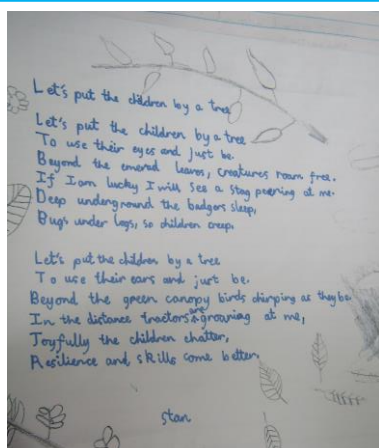 Let's put the children by a tree
Let's put the children by a tree
To use their eyes and just be.
Beyond the emerald leaves, creatures roam free.
If I am lucky I will see a stag peering at me.
Deep underground the badgers sleep,
Bugs under logs, so children creep.
Let's put the children by a tree
To use their ears and just be.
Beyond the green canopy birds chirping as they be.
In the distance tractors are groaning at me,
Joyfully the children chatter,
Resilience and skills come better.
Stan